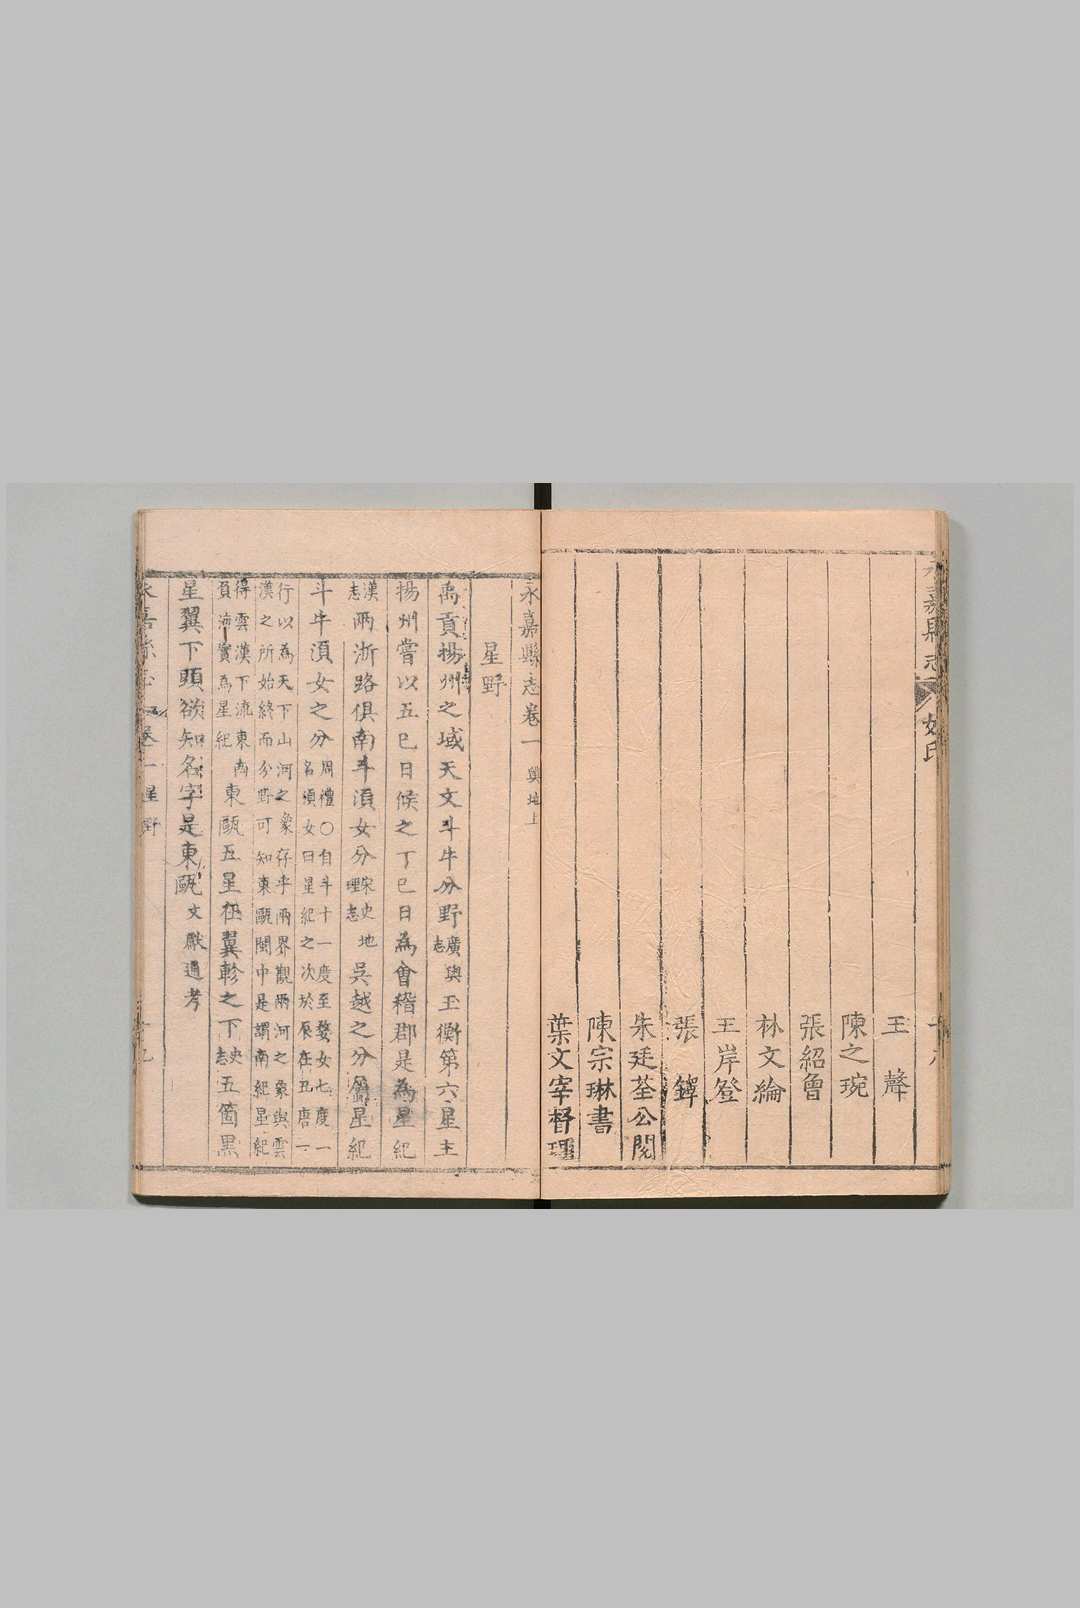 永嘉縣志 姓氏 十八
王聲
陳之琬
張紹魯
林文綸
王岸登
張鐸
朱廷荃公閱
陳宗琳書
葉文宰督理
永嘉縣志卷一 輿地上
星野
禹貢揚州之域天文斗牛分野廣輿志玉衡第六星主
揚州嘗以五巳日候之丁巳日為會稽郡是為星紀
漢志兩浙路俱南斗須女分宋史地理志吳越之分屬星紀
斗牛須女之分周禮〇自斗十一度至婺女七度一
名須女曰星紀之次於辰在丑唐一
行以為天下山河之象存乎兩界觀兩河之象與雲
漢之所始終而分野可知東甌閩中是謂南紀星紀
得雲漢下流東南
負海實為星紀東甌五星在翼軫之下史志五箇黑
星翼下頭欲知名字是東甌文獻通考
永嘉縣志 卷一 星野 十九